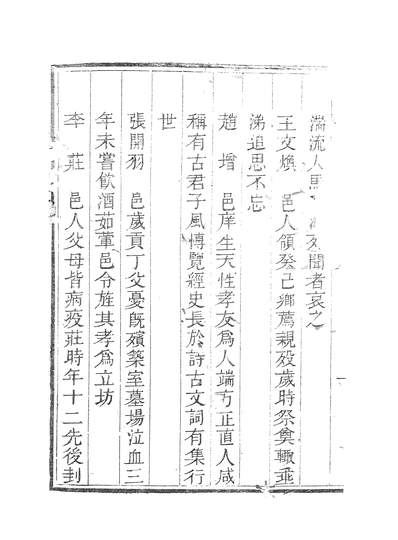 湍流人馬 聞者哀之
王文煥 邑人領癸己鄉薦親歿歲時祭奠輙垂
涕追思不忘
趙增 邑庠生天性孝友爲人端方正直人咸
稱有古君子風博覽經史長於詩古文詞有集行
世
張開羽 邑歲貢丁父憂旣殯築室墓場泣血三
年未嘗飲酒茹葷邑令旌其孝爲立坊
李莊 邑人父母皆病疫莊時年十二先後刲